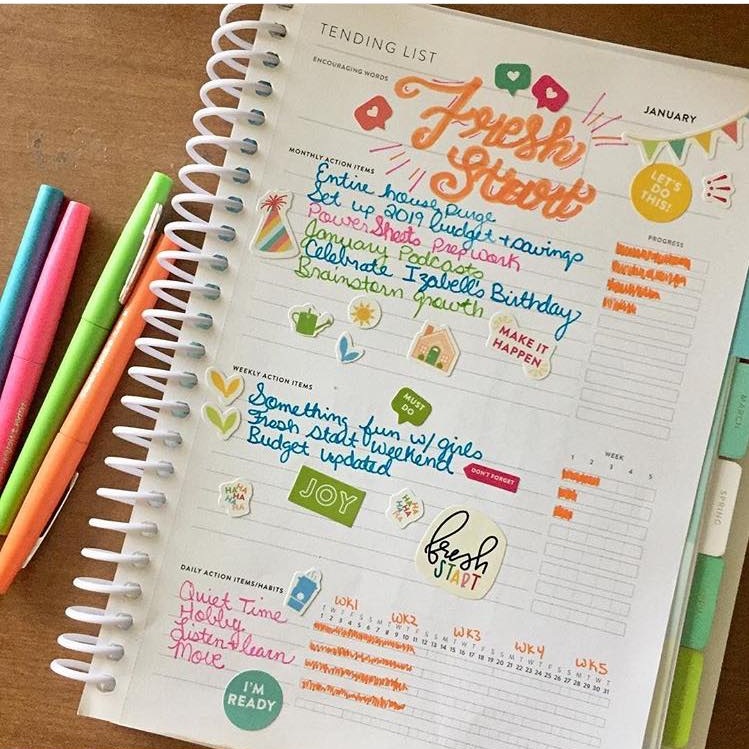 TENDING LIST
ENCOURAGING WORDS
JANUARY
Fresh
Start
LET'S
DO
THIS!
MONTHLY ACTION ITEMS
PROGRESS
Entire house purge
Set up 2019 budget + savings
PowerSheets Prepwork
January Podcasts
Celebrate Izabell's Birthday
Brainstorm growth
MAKE IT
HAPPEN
WEEKLY ACTION ITEMS
MUST
DO
WEEK
1 2 3 4 5
Something fun w/ girls
Fresh start weekend
Budget updated
DON'T FORGET
HA HA
HA HA
HA HA
JOY
HA HA
HA HA
HA
fresh
START
MARCH
SPRING
DAILY ACTION ITEMS/HABITS
WK1 WK2 WK3 WK4 WK5
T W T F S S M T W T F S S M T W T F S S M T W T F S S M T W T
1 2 3 4 5 6 7 8 9 10 11 12 13 14 15 16 17 18 19 20 21 22 23 24 25 26 27 28 29 30 31
Quiet Time
Hobby
Listen + learn
Move
I'M
READY